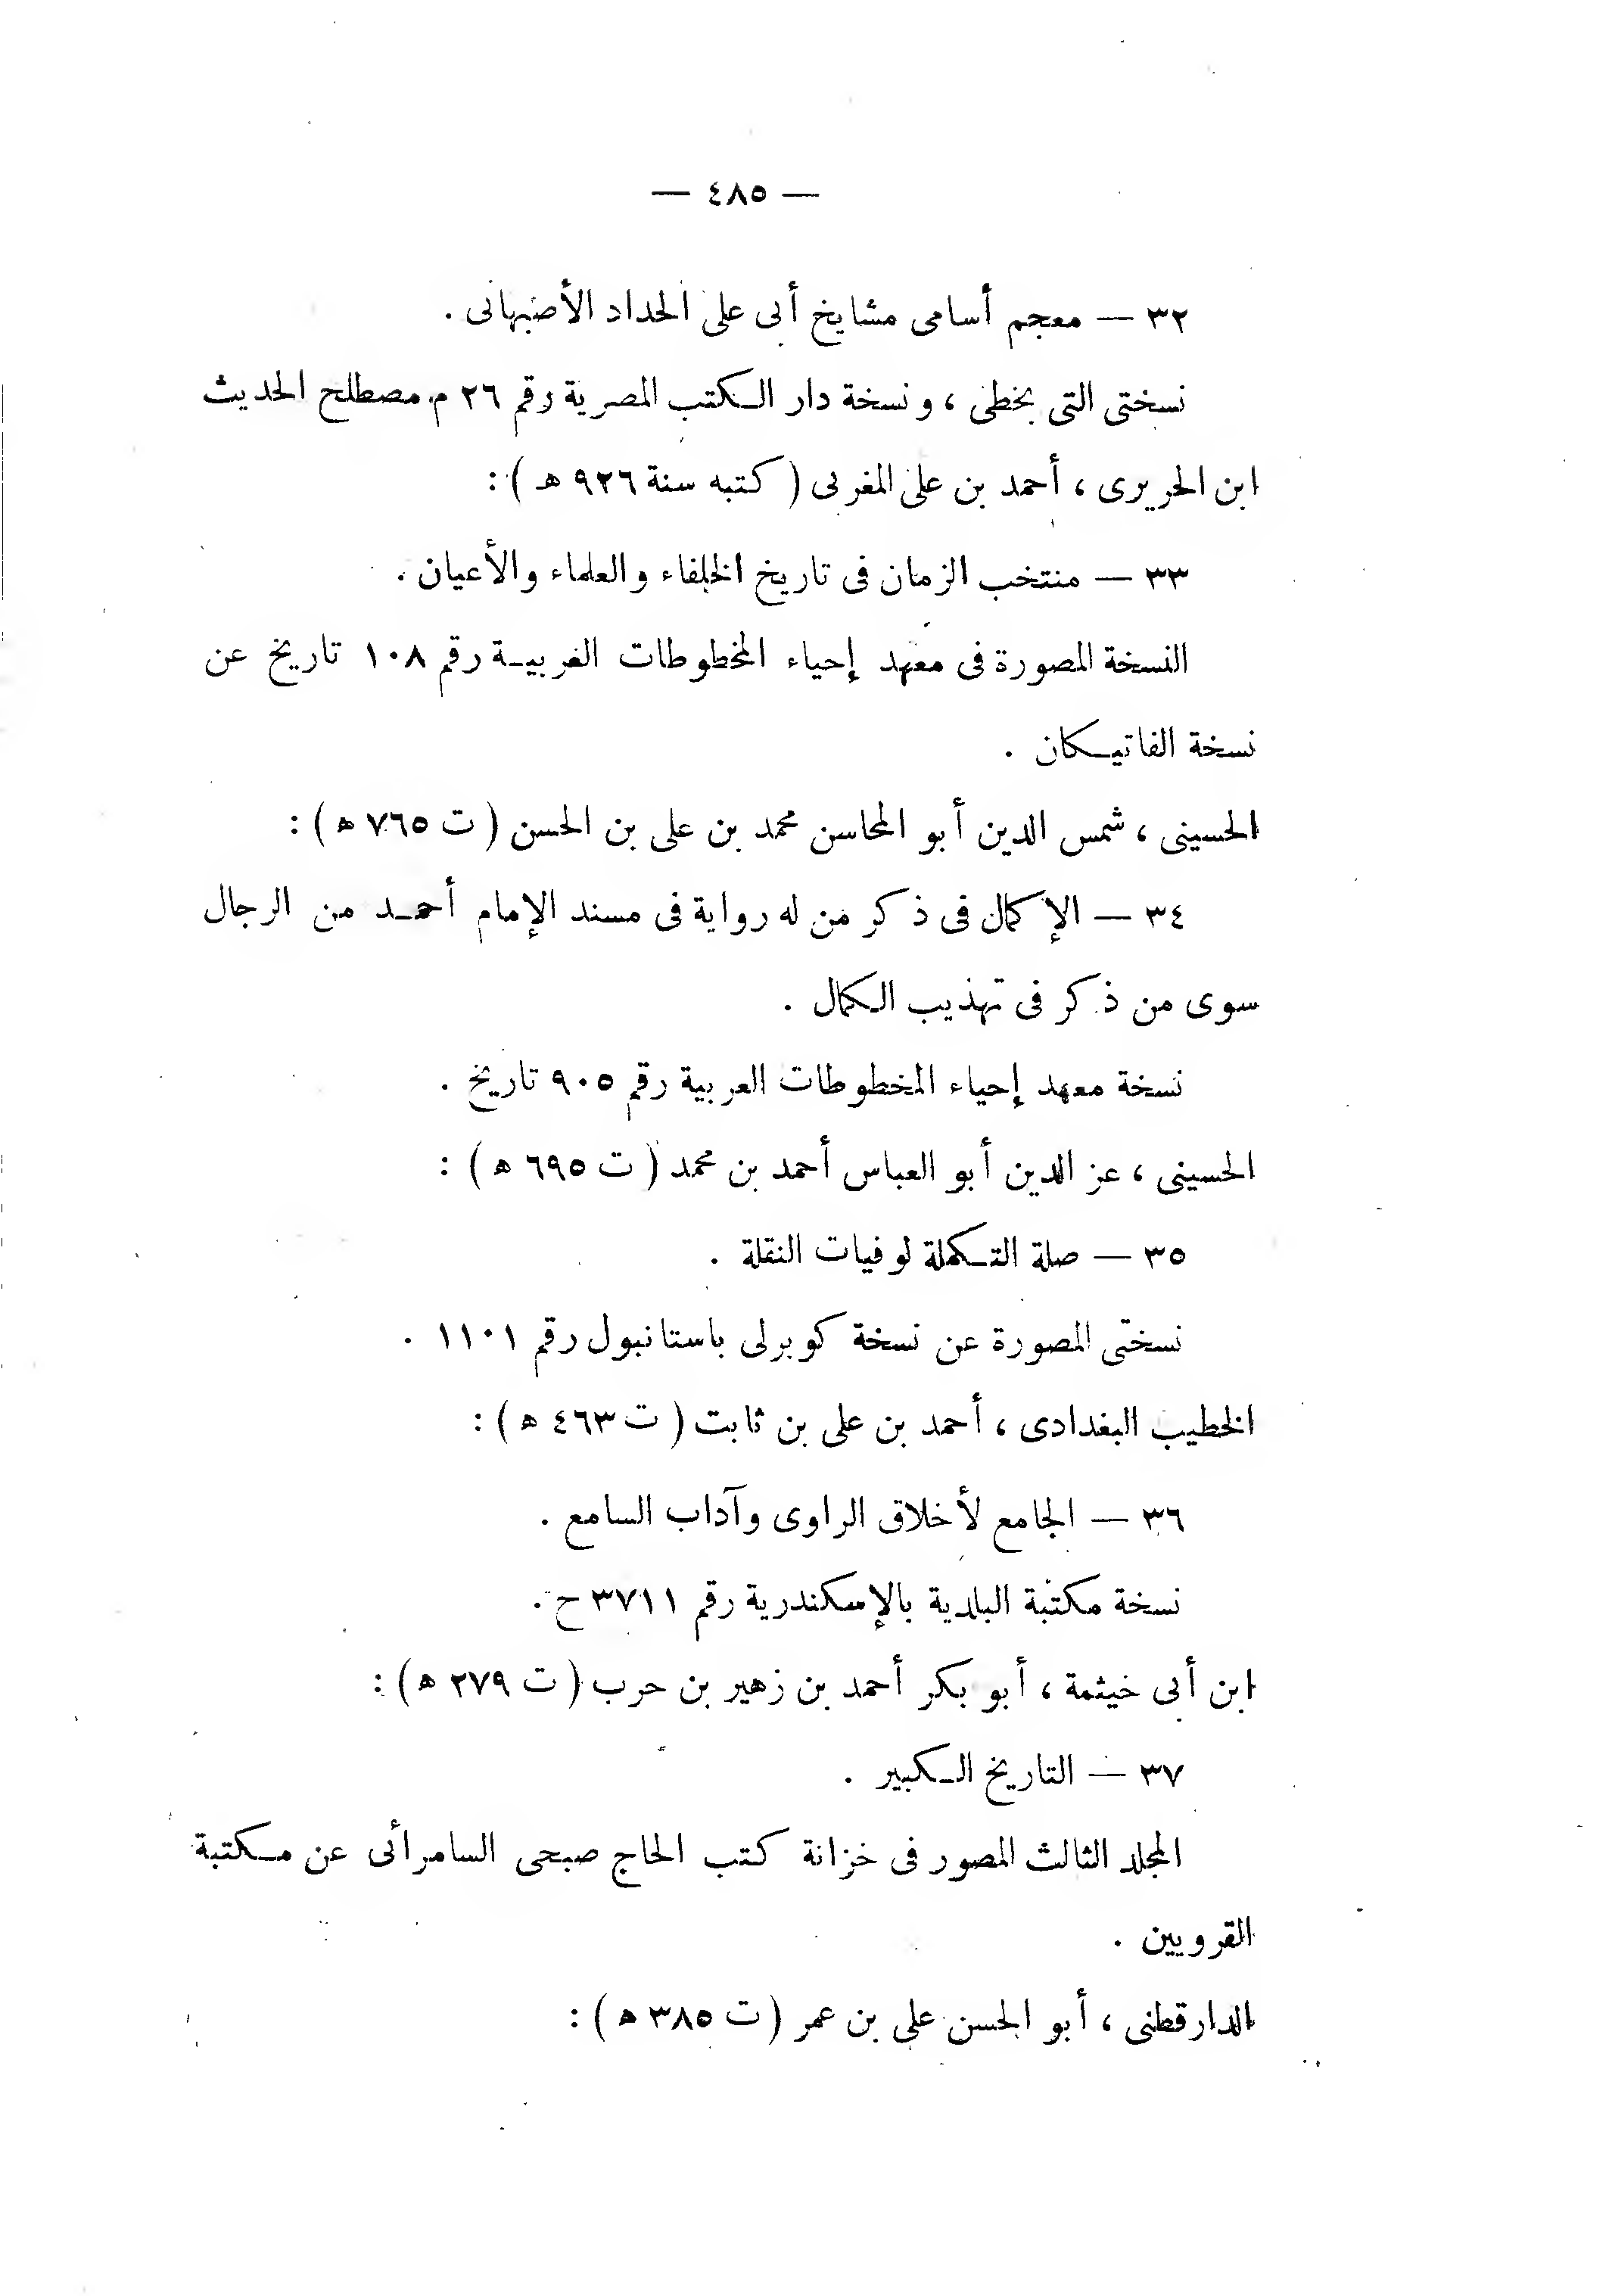 — ٤٨٥ —
٣٢ — معجم أسامى مشايخ أبى على الحداد الأصبهانى .
نسختى التى بخطى ، ونسخة دار الكتب المصرية رقم ٢٦ م مصطلح الحديث
ابن الحريرى ، أحمد بن على المغربى ( كتبه سنة ٩٢٦ هـ ) :
٣٣ — منتخب الزمان فى تاريخ الخلفاء والعلماء والأعيان .
النسخة المصورة فى معهد إحياء المخطوطات العربيـة رقم ١٠٨ تاريخ عن
نسخة الفاتيـكان .
الحسينى ، شمس الدين أبو المحاسن محمد بن على بن الحسن ( ت ٧٦٥ هـ ) :
٣٤ — الإكمال فى ذكر من له رواية فى مسند الإمام أحمـد من الرجال
سوى من ذكر فى تهذيب الـكمال .
نسخة معهد إحياء المخطوطات العربية رقم ٩٠٥ تاريخ .
الحسينى ، عز الدين أبو العباس أحمد بن محمد ( ت ٦٩٥ هـ ) :
٣٥ — صلة التـكملة لوفيات النقلة .
نسختى المصورة عن نسخة كوبرلى باستانبول رقم ١١٠١ .
الخطيب البغدادى ، أحمد بن على بن ثابت ( ت ٤٦٣ هـ ) :
٣٦ — الجامع لأخلاق الراوى وآداب السامع .
نسخة مكتبة البلدية بالإسكندرية رقم ٣٧١١ ح .
ابن أبى خيثمة ، أبو بكر أحمد بن زهير بن حرب ( ت ٢٧٩ هـ ) :
٣٧ — التاريخ الـكبير .
المجلد الثالث المصور فى خزانة كتب الحاج صبحى السامرائى عن مـكتبة
القرويين .
الدارقطنى ، أبو الحسن على بن عمر ( ت ٣٨٥ هـ ) :